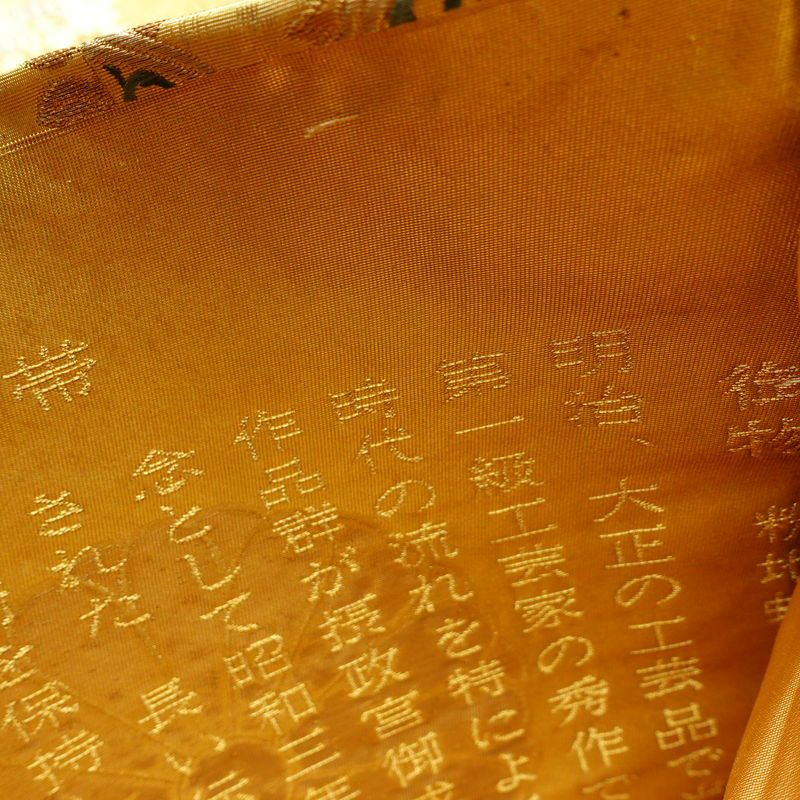 御物
明治、大正の工芸品で
第一級工芸家の秀作で
時代の流れを特によ
作品群が摂政宮御成
念として昭和三年
された 長い
を保持
帯